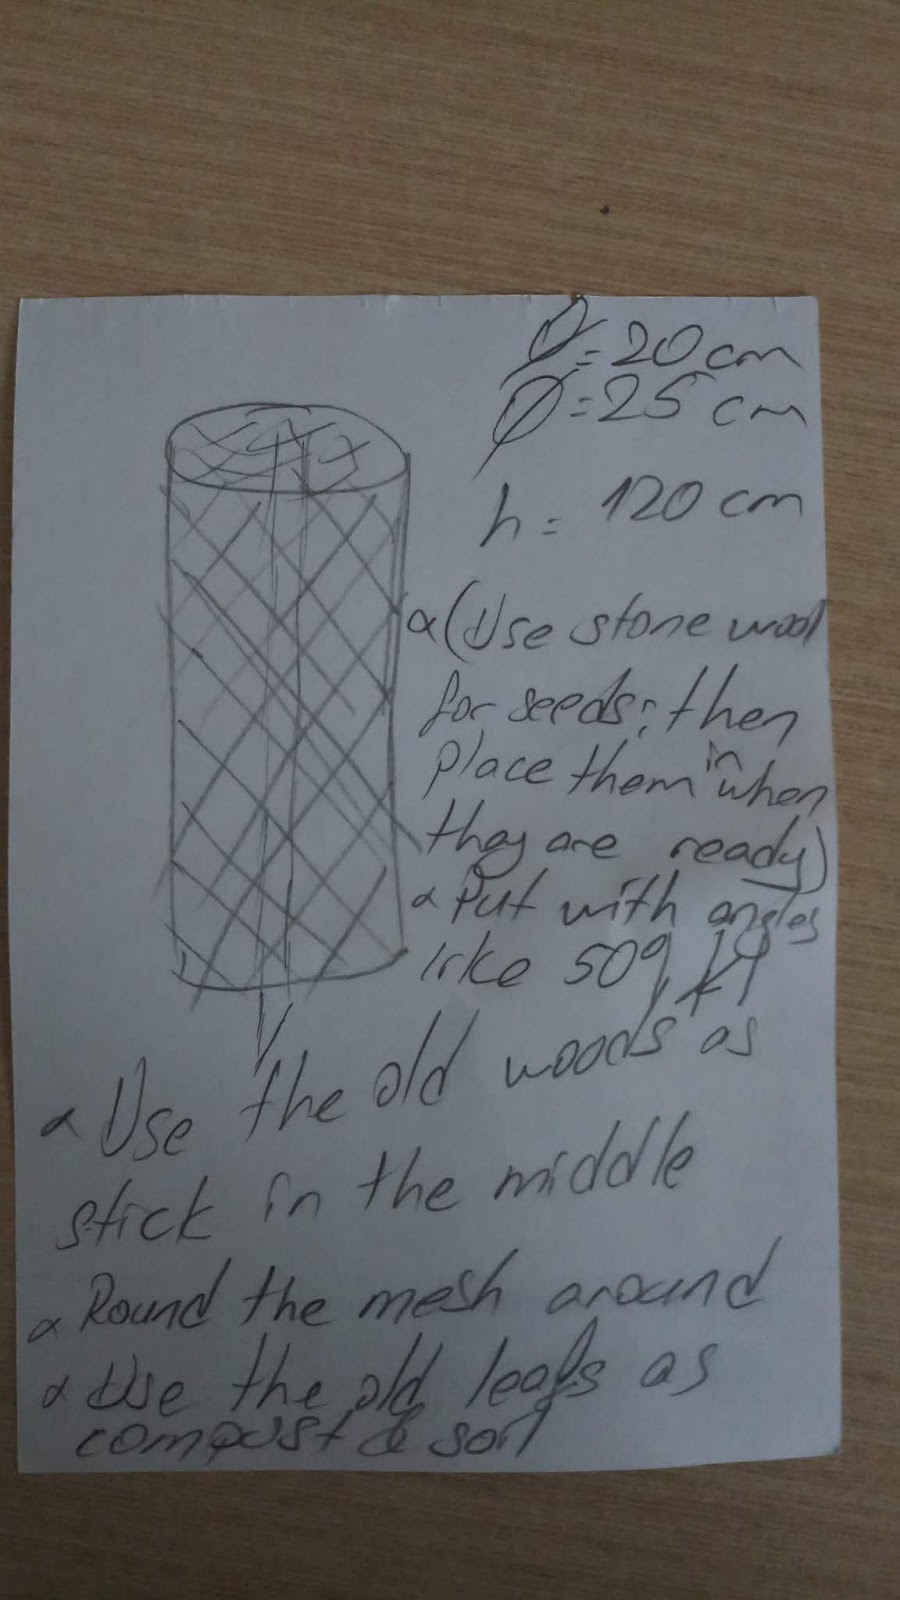 Ø = 20 cm
Ø = 25 cm
h = 120 cm
α (Use stone wool
for seeds; then
place them in when
they are ready)
α Put with angles
like 50°
α Use the old woods as
stick in the middle
α Round the mesh around
α Use the old leafs as
compost & soil